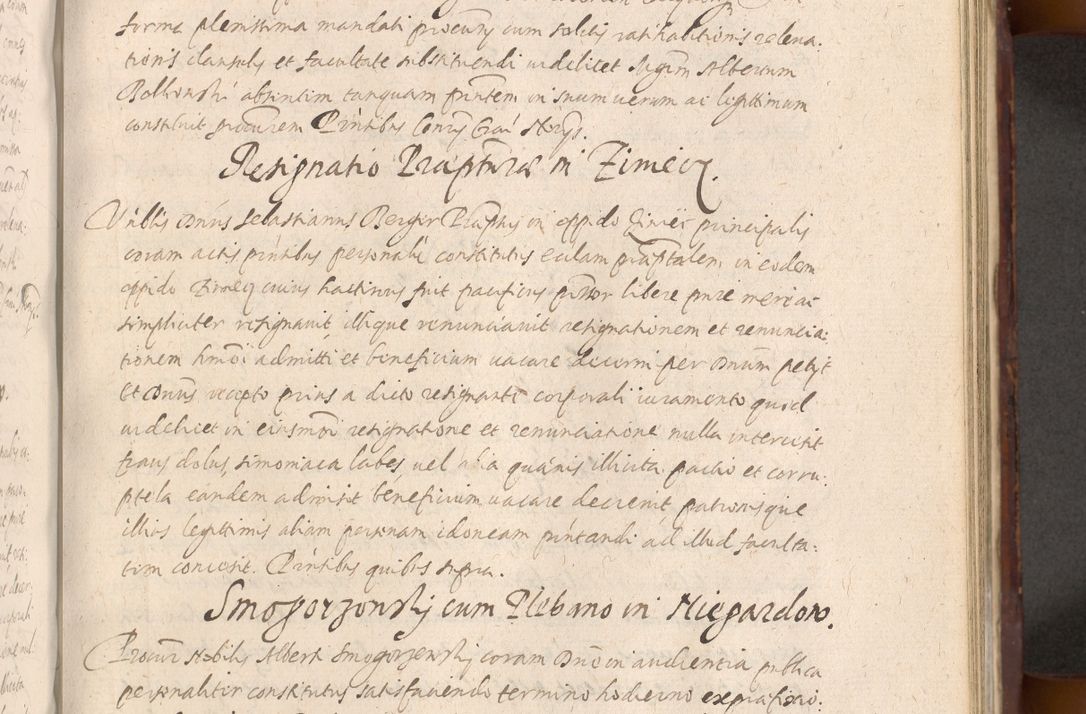 forma plenissima mandati procurñ cum solitis ratihabitionis relena:
tionis clausulis et facultate substituendi videlicet Mgrm Albertum
absentem tanquam pñtem in suum verum ac legittimum
constituit procurem Pñtibus
Resignatio Præpturæ in Zimiecz.
Vnblis Dnus Sebastianus Berger Præptus in oppido Zimiec principalis
coram actis pñtibus personalr constitutus eclam præptalem in eodem
oppido Zimiecz cuius hactinus fuit pacificus possor libere pure mere ac
simpliciter resignavit illique renunciavit resignationem et renuncia:
tionem hmoi admitti et beneficium vacare decerni per Dnum petijt
Et Dnus recepto prius a dicto resignante corporali iuramento quod
videlicet in eiusmoi resignatione et renunciatione nulla intercesit
fraus dolus, simoniaca labes, vel alia quavis illicita pactio et corru:
ptela eandem admisit beneficium vacare decrevit patronisque
illius legittimis aliam personam idoneam pñtandi ad illud faculta:
tem concesit. Pñtibus quibus supra.
Smogorzowskj cum Plebano in Niegardow.
Procur Nobilis Albert Smogorzewskj coram Dno in audientia publica
personaliter constitutus satisfaciendo termino hodierno ex præfixio: